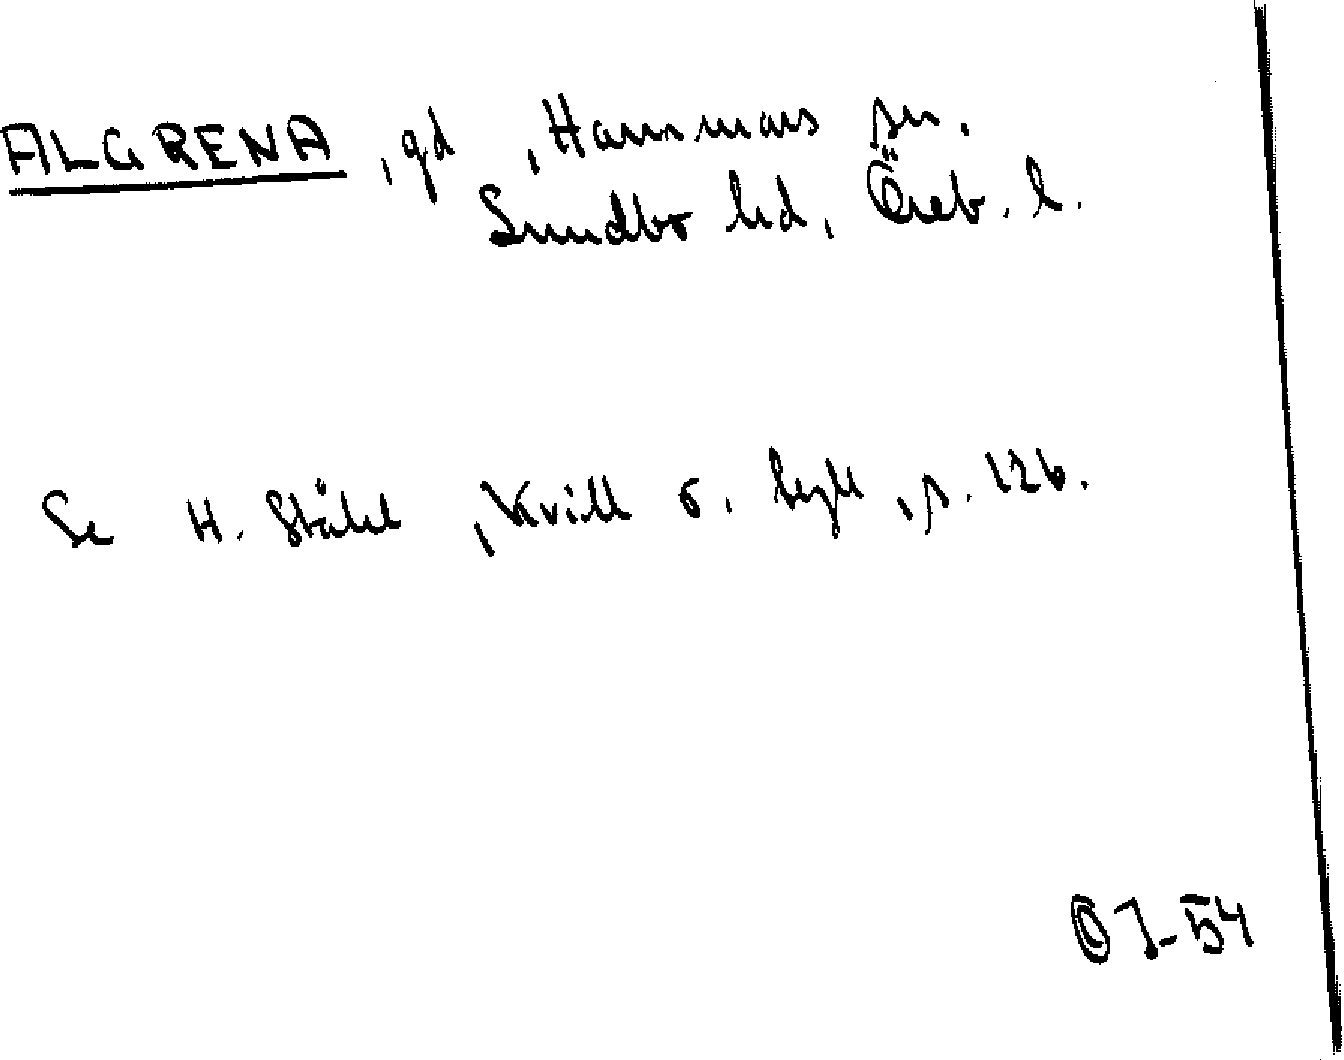 ALGRENA, gd, Hammars sn.
Sundbo hd, Öreb. l.
Se H. Ståhl, Kvill o. begl, s. 126.
ÖJ-54